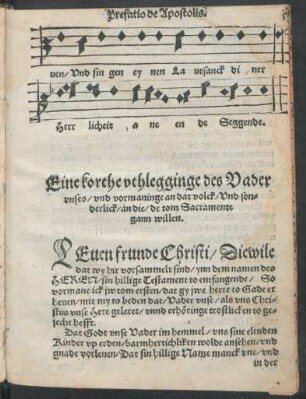 Prefatio de Apostolis.
uen/ Vnd sin gen ey nen La uesanck di, ner
Herr licheit, a ne en de Seggende.
Eine korthe vthlegginge des Vader
vnses/ vnd vormaninge an dat volck/ Vnd son-
derlick/ an die/ de tom Sacramente
gann willen.
LEuen frunde Christi/ Diewile
dat wy hir vorsammelt sind/ ynn dem namen des
HEREN/ sin hillige Testamente to entfangende/ So
vormant ick jw tom ersten/ dat gy jwe herte to Gade er
heuen/ mit my to beden dat/ Vader vnse/ als vns Chri-
stus vnse Here geleret/ vnnd erhöringe trostlicken to ge-
secht hefft.
Dat Godt vnse Vader im hemmel/ vns sine elenden
Kinder vp erden/ barmhertichliken wolde ansehen/ vnd
gnade vorlenen/ Dat sin hillige Name manck vns/ vnd
in der